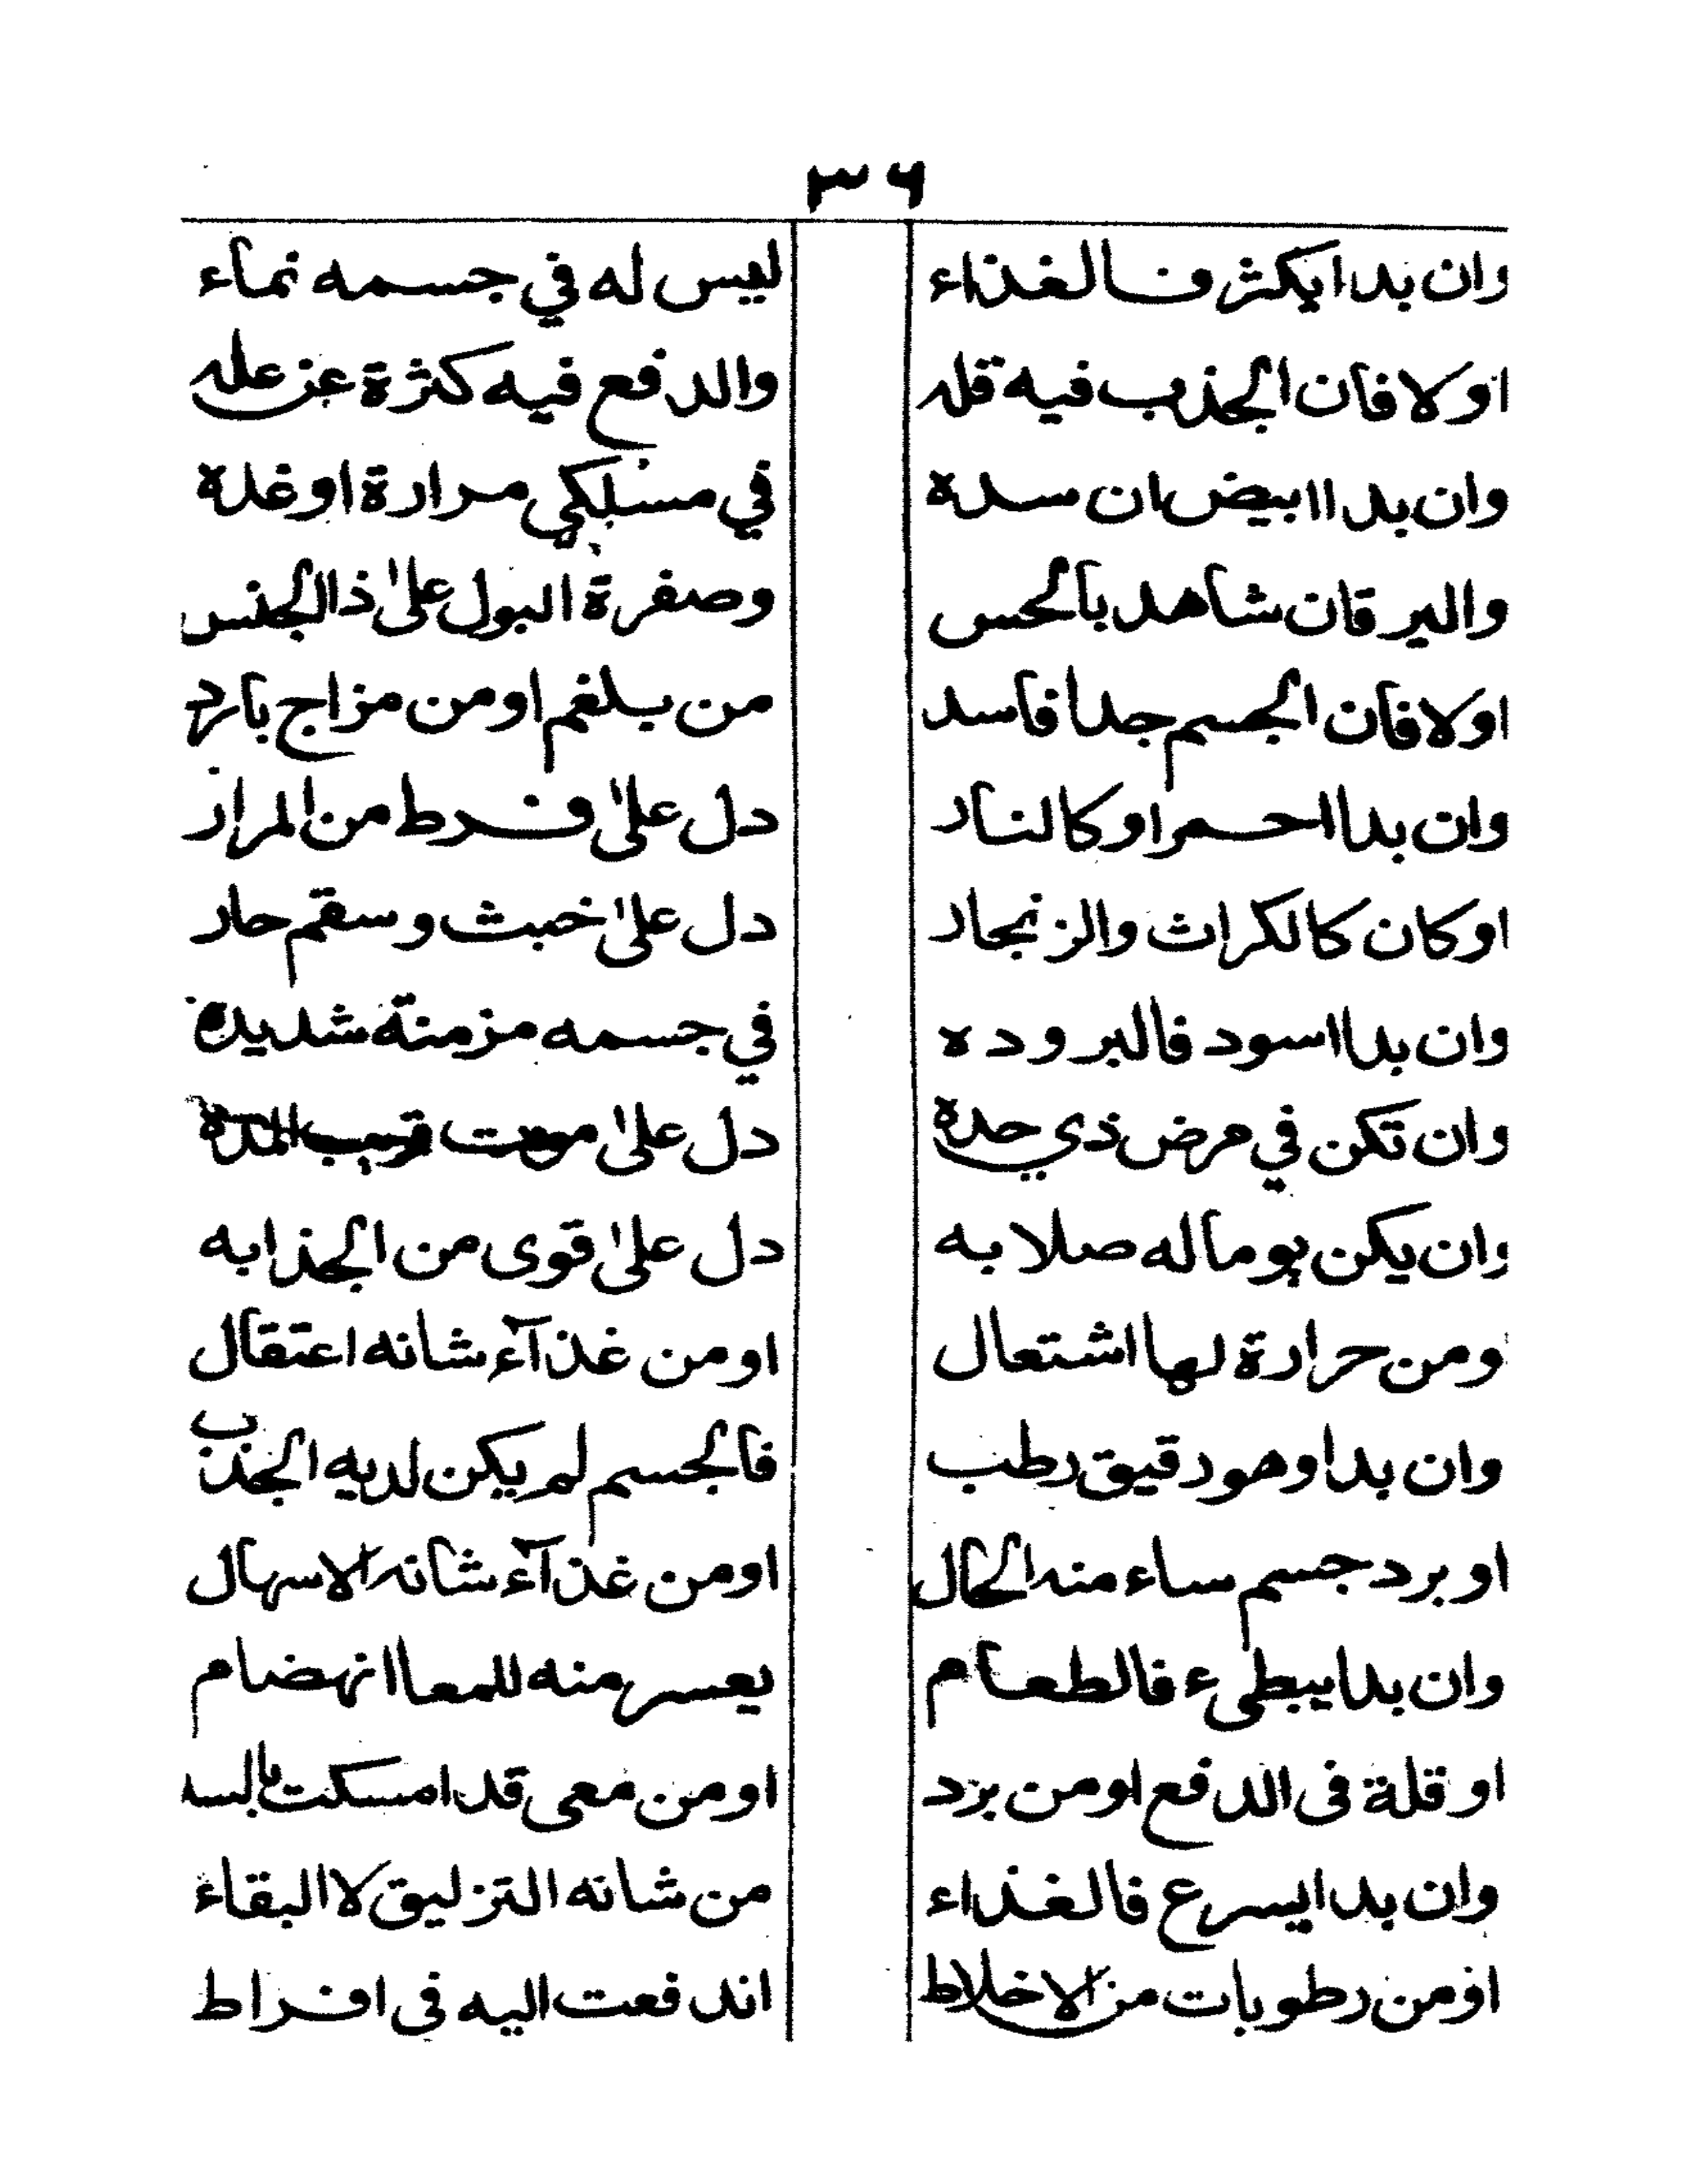 ٣٦
وان بدا يكثر فالغذاء ليس له في جسمه نماء
اولا فان الجذب فيه قله والدفع فيه كثرة عن عله
وان بدا ابيض بان سده في مسلكي مرارة او غده
واليرقان شاهد بالحس وصفرة البول على ذا الجنس
اولا فان الجسم جدا فاسد من بلغم او من مزاج بارد
وان بدا احمر او كالنار دل على فرط من المرار
او كان كالكراث والزنجار دل على خبث وسقم حار
وان بدا اسود فالبروده في جسمه مزمنة شديده
وان تكن في مرض ذي حدة دل على موت قريب المدة
وان يكن يوما له صلابه دل على قوى من الجذابه
ومن حرارة لها اشتعال او من غذآء شانه اعتقال
وان بدا وهو دقيق رطب فالجسم لم يكن لديه الجذب
او برد جسم ساء منه الحال او من غذآء شانه الاسهال
وان بدا يبطيء فالطعام يعسر منه للمعا انهضام
او قلة فى الدفع او من برد او من معى قد امسكت بالسد
وان بدا يسرع فالغذاء من شانه التزليق لا البقاء
او من رطوبات من الاخلاط اندفعت اليه فى افراط